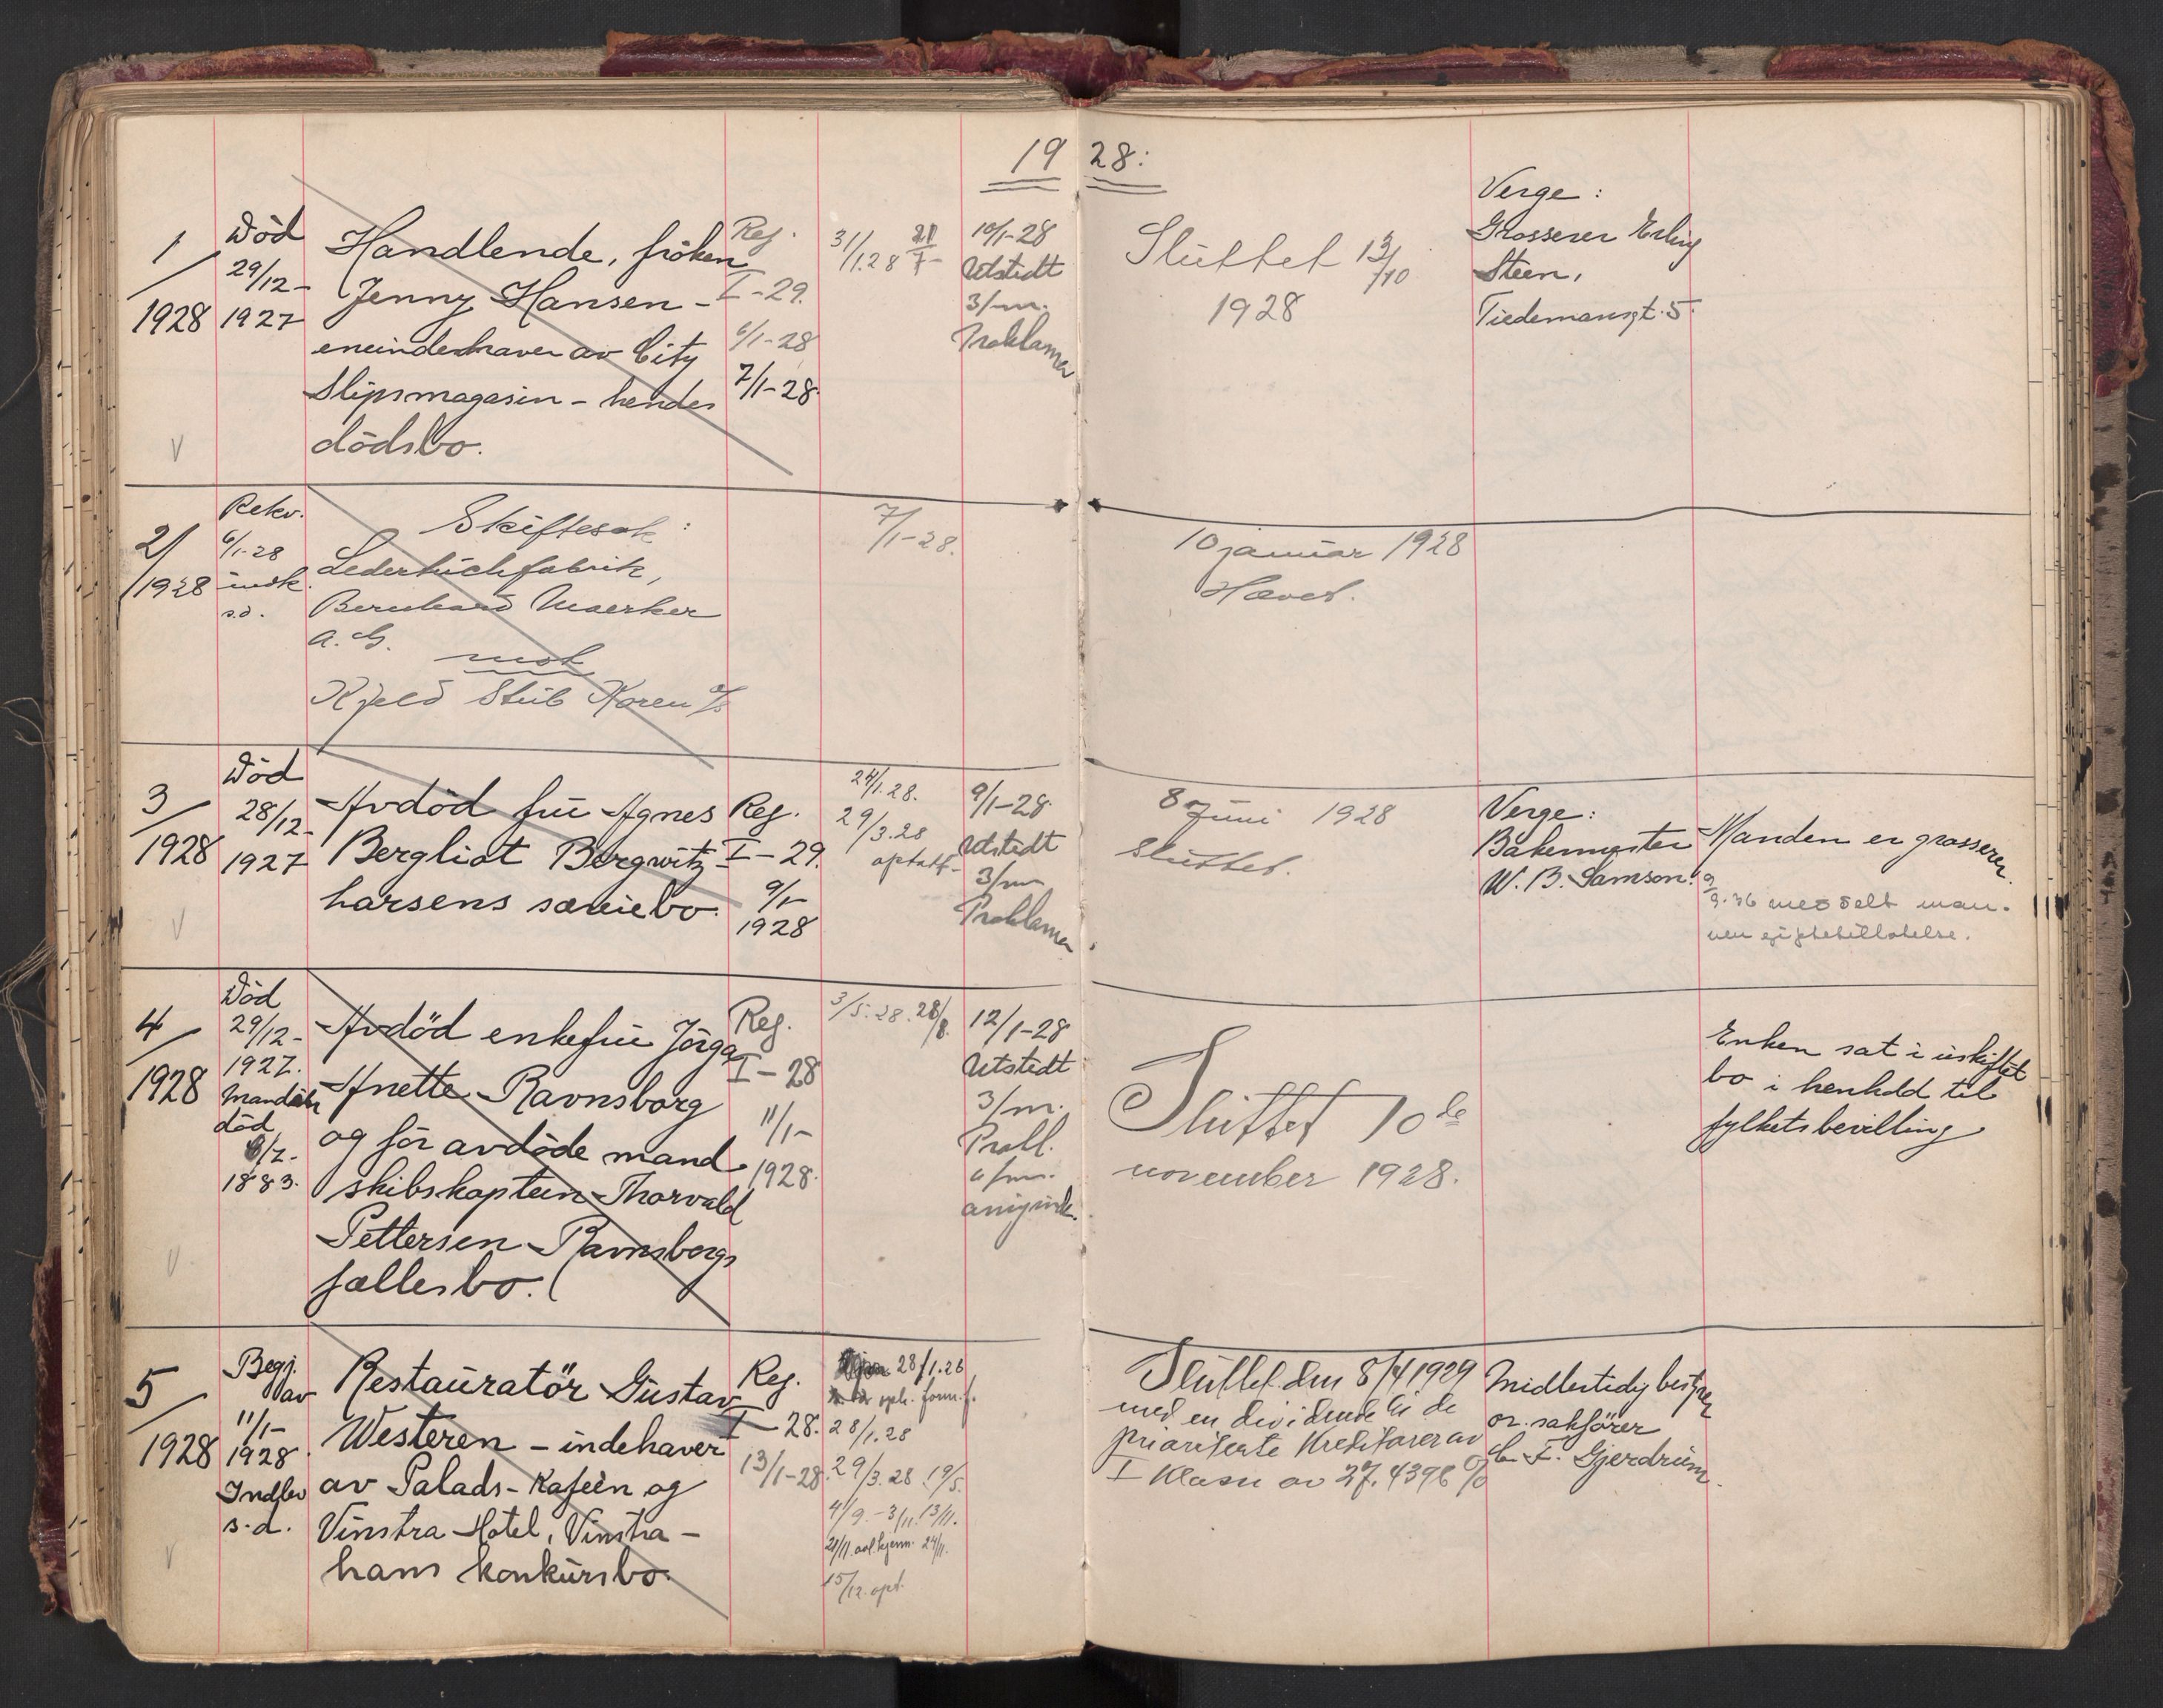 1928:
1/1928
Död
29/12-
1927
Handlende, fröken
Jenny Hansen -
eneindehaver av City
Slipsmagasin - hendes
dödsbo.
Reg.
I-29.
6/1-28
7/1-28.
31/1.28
10/1-28
Utstedt
3/m.
Proklama
Sluttet 13/10
1928
Verge:
Grosserer Erling
Steen,
Tiedemansgt. 5.
V
2/1928
Rekv.
6/1-28
indk.
s.d.
Skiftesak:
Ledertuchfabrik,
Bernhard Maerker
A.G.
mot
Kjeld Stub Koren A/S
7/1-28.
10 januar 1928
Hævet.
3/1928
Död
28/12-
1927
Avdöd frü Agnes
Bergliot Bergwitz-
harsens særiebo.
Reg.
I-29.
9/1-
1928
24/1.28.
29/3.28
optatt
9/1-28.
Utstedt
3/m
Proklama
8 juni 1928
Sluttet.
Verge:
Bakermester
W. B. Samson.
Manden er grosserer.
9/9.36 meddelt man-
nen giftetillatelse.
V
4/1928
Död
29/12-
1927.
Manden
död
1883.
Avdöd enkefrü Jörga
Anette Ravnsborg
og för avdöde mand
skibskaptein Thorvald
Pettersen Ravnsborgs
fællesbo.
Reg.
I-28
11/1-
1928.
3/5.28. 28/8.
12/1-28
Utstedt
3/m.
Prokl.
Sluttet 10de
november 1928.
Enken sat i uskiftet
bo i henhold til
fylketsbevilling
V
5/1928
Begj.
av
11/1-
1928.
Indlev
s.d.
Restauratör Gustav
Westeren - indehaver
av Palads-Kafeèn og
Vinstra Hotel, Vinstra -
hans konkursbo.
Reg.
I-28.
13/1-28.
28/1.28
28/1.28
29/3.28. 19/5.
4/9.-3/11.13/11.
15/12. opt.
Sluttet den 8/4 1929
med en dividende til de
prioriterte Kreditorer av
I Klasse av 27.4396 %
Midlertidig bestyrer
or. sakförer
C. F. Gjerdrum.
V